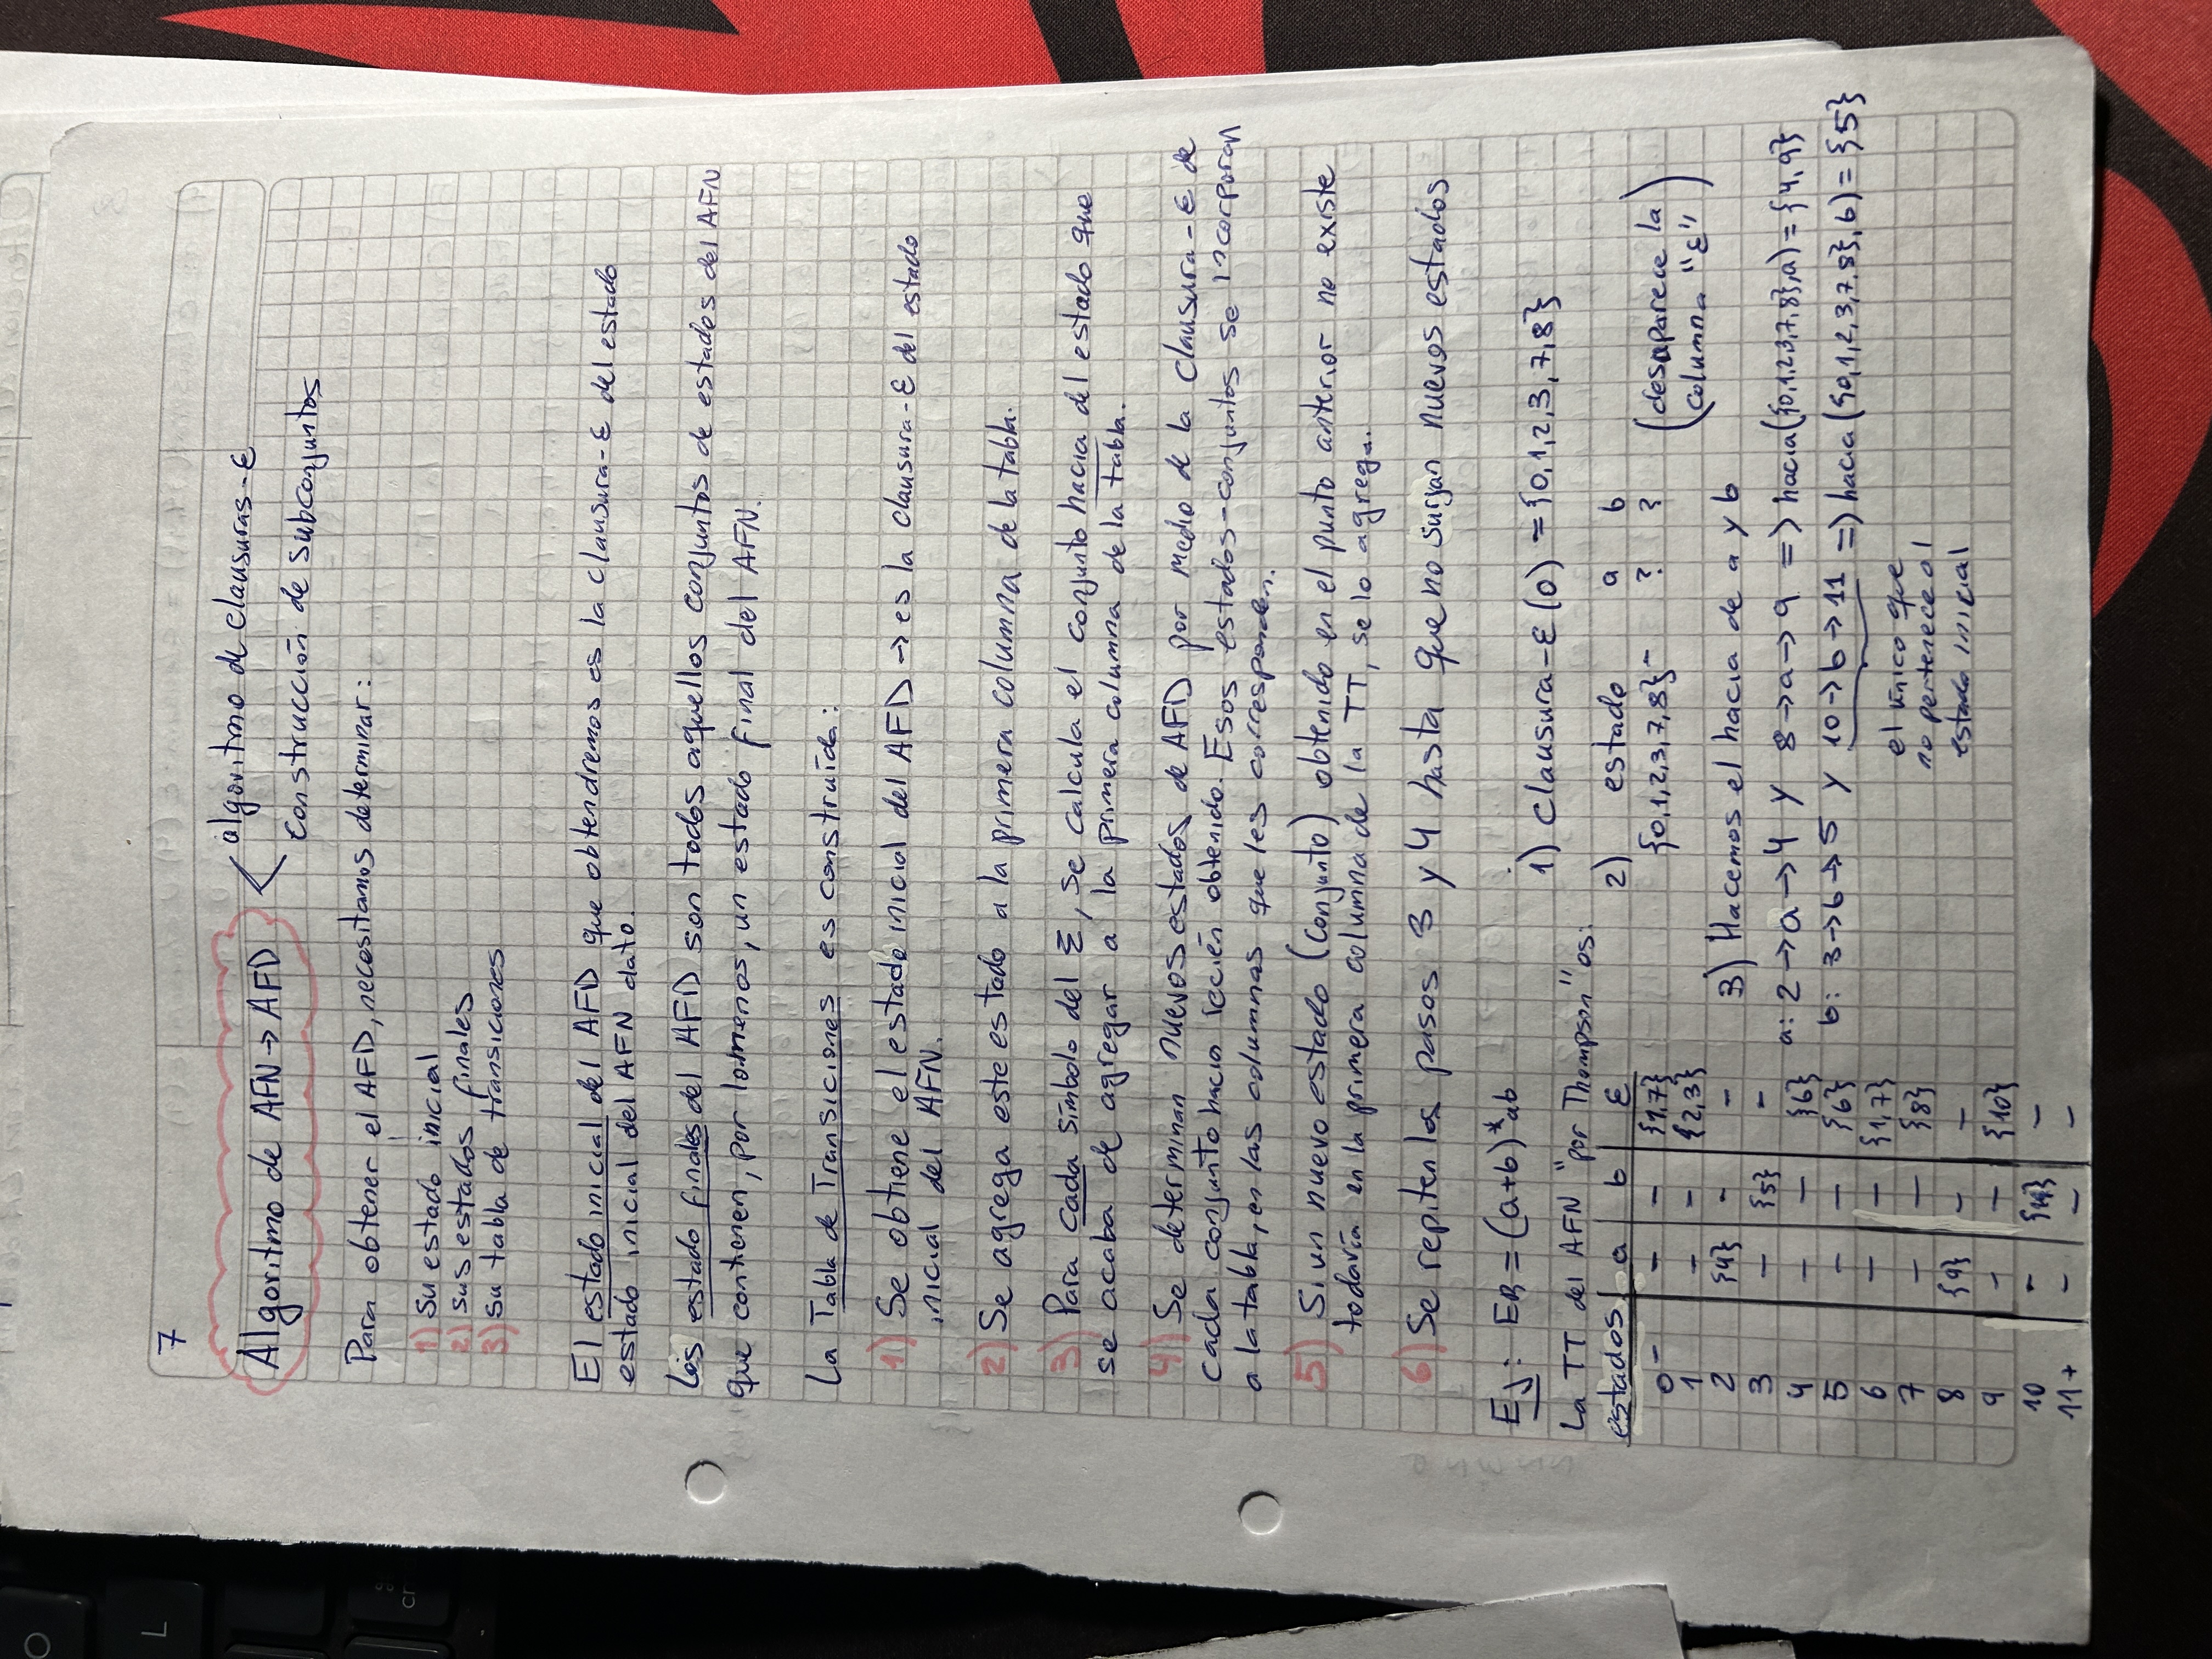 7
Algoritmo de AFN → AFD < algoritmo de clausuras-ε
construcción de subconjuntos
Para obtener el AFD, necesitamos determinar:
1) su estado inicial
2) sus estados finales
3) su tabla de transiciones
El estado inicial del AFD que obtendremos es la clausura-ε del estado
estado inicial del AFN dato.
Los estado finales del AFD son todos aquellos conjuntos de estados del AFN
que contienen, por lo menos, un estado final del AFN.
La Tabla de Transiciones es construída:
1) Se obtiene el estado inicial del AFD → es la clausura-ε del estado
inicial del AFN.
2) Se agrega este estado a la primera columna de la tabla.
3) Para cada símbolo del Σ, se calcula el conjunto hacia del estado que
se acaba de agregar a la primera columna de la tabla.
4) Se determinan nuevos estados de AFD por medio de la clausura-ε de
cada conjunto hacia recién obtenido. Esos estados-conjuntos se incorporan
a la tabla, en las columnas que les corresponden.
5) Si un nuevo estado (conjunto) obtenido en el punto anterior no existe
todavía en la primera columna de la TT, se lo agrega.
6) Se repiten los pasos 3 y 4 hasta que no surjan nuevos estados
Ej: ER = (a+b)*ab
La TT del AFN "por Thompson" es:
estados a b ε
0- - - {1,7}
1 - - {2,3}
2 {4} - -
3 - {5} -
4 - - {6}
5 - - {6}
6 - - {1,7}
7 - - {8}
8 {9} - -
9 - - {10}
10 - {11} -
11+ - - -
1) Clausura-ε(0) = {0,1,2,3,7,8}
2) estado a b
{0,1,2,3,7,8}- ? ? (desaparece la
columna "ε")
3) Hacemos el hacia de a y b
a: 2→a→4 y 8→a→9 => hacia({0,1,2,3,7,8},a) = {4,9}
b: 3→b→5 y 10→b→11 => hacia({0,1,2,3,7,8},b) = {5}
el único que
no pertenece al
estado inicial